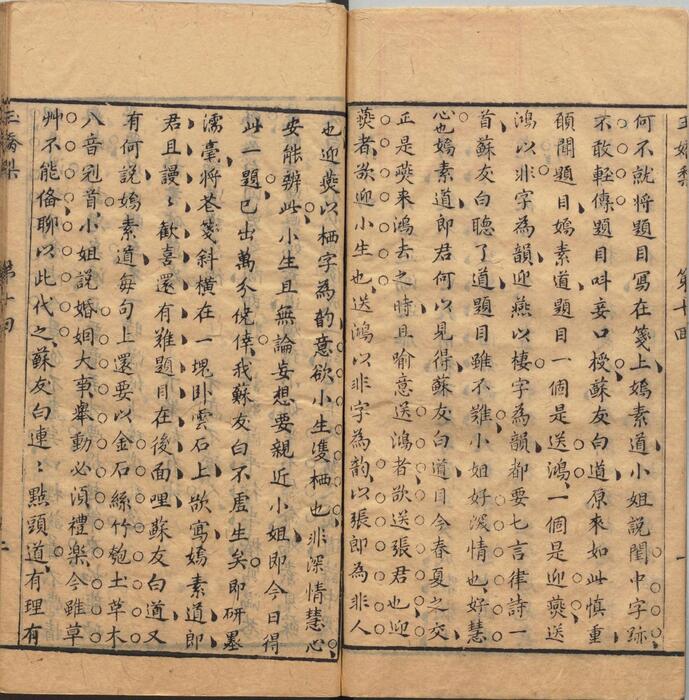 玉嬌梨 第十回 一
何不就將題目寫在箋上嬌素道小姐說閨中字跡
不敢輕傳題目呌妾口授蘇友白道原來如此慎重
願聞題目嬌素道題目一個是送鴻一個是迎燕送
鴻以非字為韻迎燕以棲字為韻都要七言律詩一
首蘇友白聽了道題目雖不難小姐好深情也好慧
心也嬌素道郎君何以見得蘇友白道目今春夏之交
正是燕来鴻去之時且喻意送鴻者欲送張君也迎
燕者欲迎小生也送鴻以非字為韵以張郎為非人
也迎燕以栖字為韵意欲小生雙栖也非深情慧心
安能辨此小生且無論妄想要親近小姐即今日得
此一題已出萬分僥倖我蘇友白不虛生矣即研墨
濡毫將花箋斜橫在一塊卧雲石上欲寫嬌素道郎
君且謾〻歡喜還有難題目在後面哩蘇友白道又
有何說嬌素道每句上還要以金石絲竹匏土草木
八音冠首小姐說婚姻大事舉動必湏禮樂今雖草
艸不能俻聊以此代之蘇友白連〻點頭道有理有
玉嬌梨 第十回